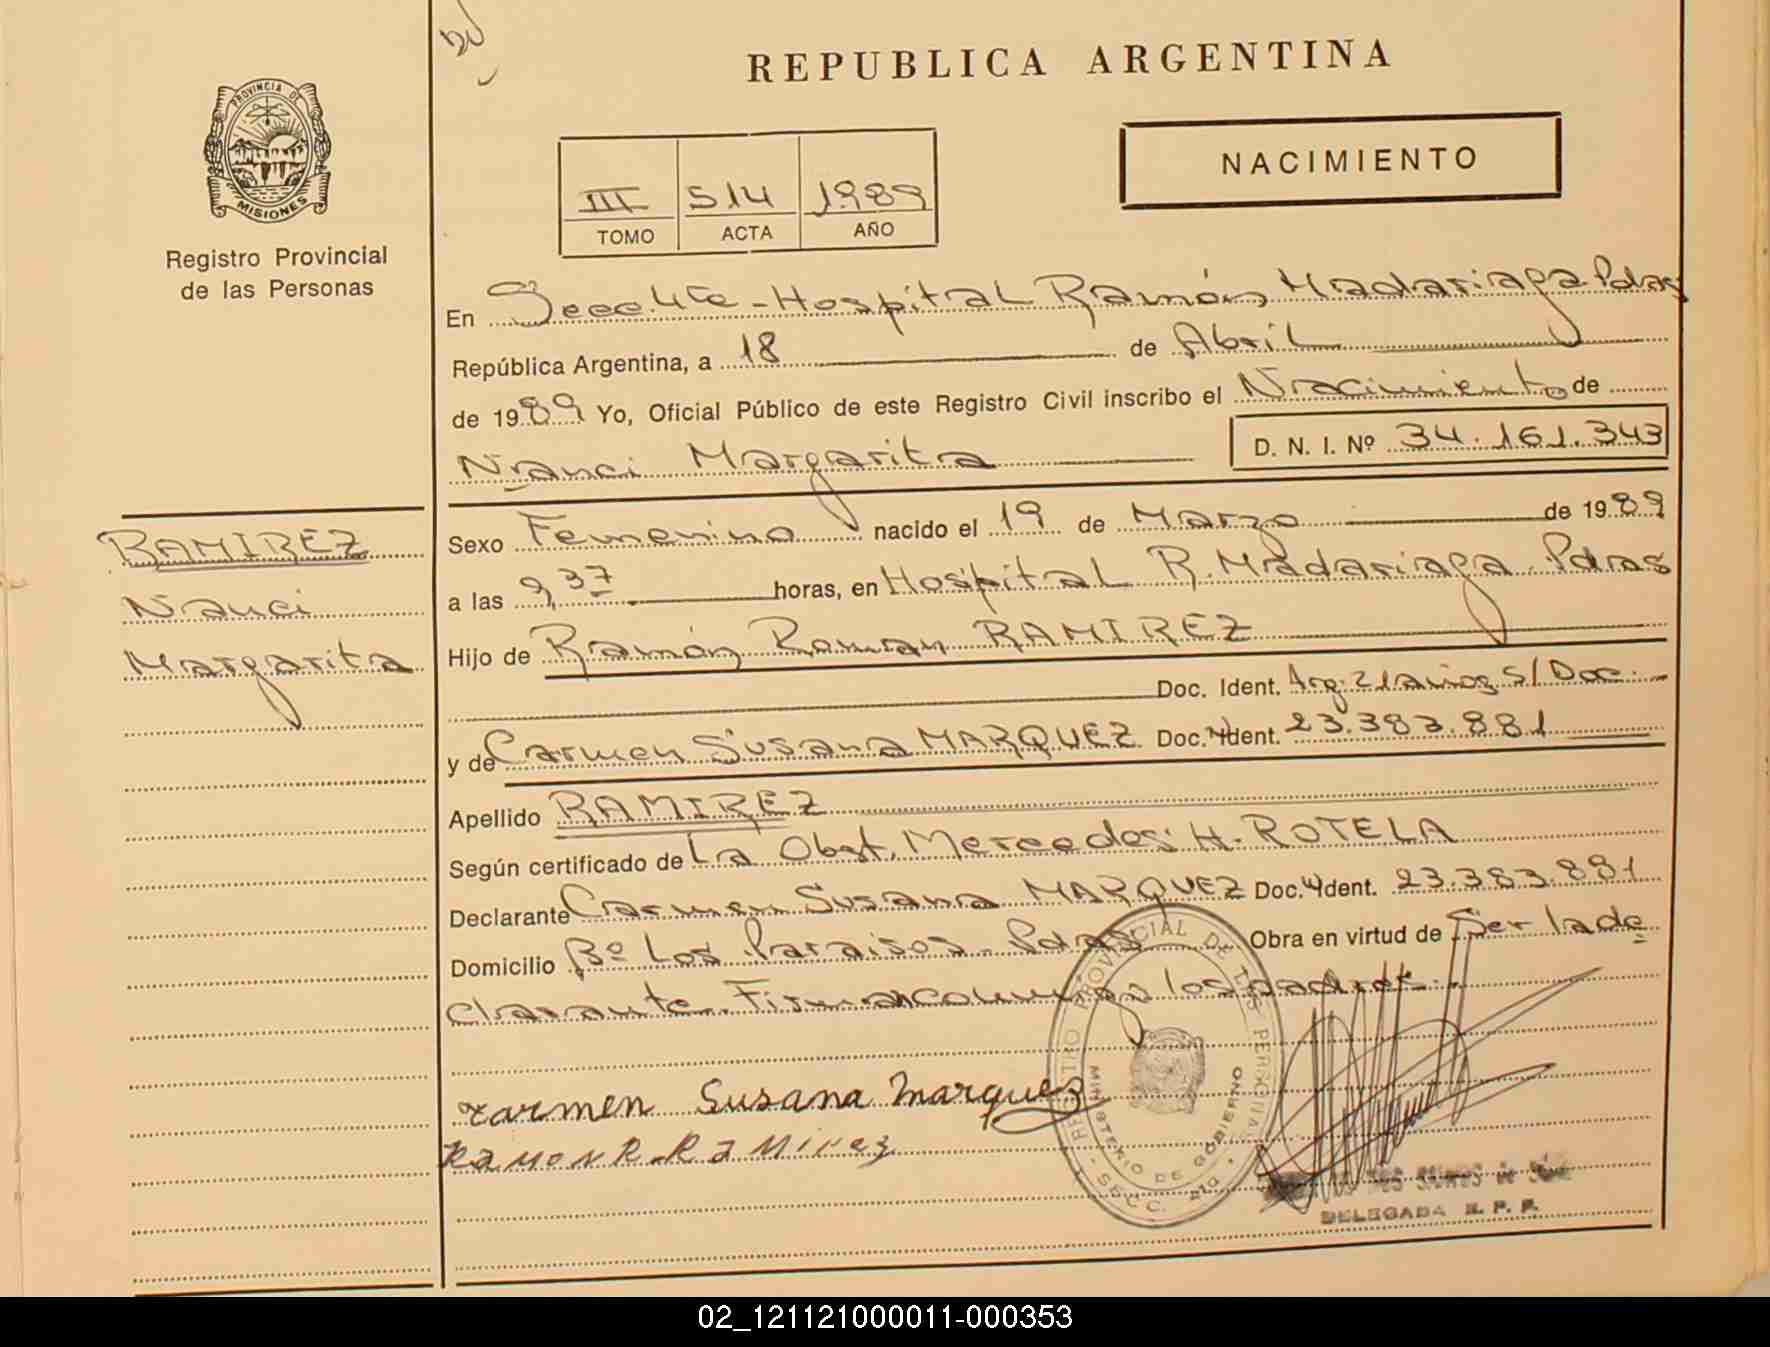 REPUBLICA ARGENTINA
PROVINCIA DE
MISIONES
Registro Provincial
de las Personas
III 514 1989
TOMO ACTA AÑO
NACIMIENTO
En Secc. 4ta - Hospital Ramón Madariaga Pdas
República Argentina, a 18 de Abril
de 1989 Yo, Oficial Público de este Registro Civil inscribo el Nacimiento de
Nanci Margarita D. N. I. Nº 34.161.343
RAMIREZ
Nanci
Margarita
Sexo Femenino nacido el 19 de Marzo de 1989
a las 9,37 horas, en Hospital R. Madariaga. Pdas
Hijo de Ramón Roman RAMIREZ
Doc. Ident. Arg. 21 años s/Doc.
y de Carmen Susana MARQUEZ Doc. Ident. 23.383.881
Apellido RAMIREZ
Según certificado de La Obst. Mercedes H. ROTELA
Declarante Carmen Susana MARQUEZ Doc. Ident. 23.383.881
Domicilio Bº Los Paraisos - Pdas Obra en virtud de Ser la de
clarante. Firman conmigo los padres.
Carmen Susana Marquez
RAMON R. RAMirez
REGISTRO PROVINCIAL DE LAS PERSONAS
MINISTERIO DE GOBIERNO
SECC. 4ta
DELEGADA R. P. P.
02_121121000011-000353